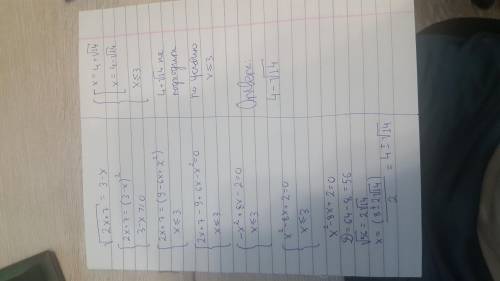 √2x+7 = 3-x
{ 2x+7 = (3-x)²
3-x ≥ 0
{ 2x+7 = (9-6x+x²)
x ≤ 3
{ 2x+7-9+6x-x²=0
x ≤ 3
{ -x²+8x-2=0
x ≤ 3
{ x²-8x+2=0
x ≤ 3
x²-8x+2=0
D = 64-8 = 56
√56 = 2√14
x = (8±2√14)/2 = 4±√14
{ [ x = 4+√14
x = 4-√14
x ≤ 3
4+√14 не
подходит
по условию
x ≤ 3
Ответ:
4-√14